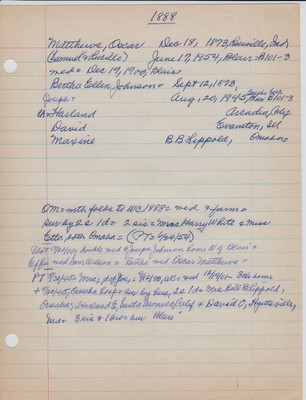 1888
Matthews, Oscar Dec 18, 1873, Ind
(Samuel & Lucille) June 17, 1954, Blair B101-3
med Dec 19, 1900, Blair
Bertha Ellen Johnson Sept 12, 1873,
Joseph Aug. 20, 1945, B101-3
Harland Arcadia, Calif
David Evanston, Ill
Maxine B.B. Lippold, Omaha
OM with folks to WC 1888 med & farm
surv 2s 1d 2 sis = Mrs Harry White & Miss
Etta, both Omaha = (PT = 6/24/54)
double med Joseph Johnson home N of Blair =
Effie med Tom Wilson = Bertha med Oscar Matthews
PT 8/23/45: Mrs,
8/20/45, Omaha hosp = sur by hus, 2s 1d = Mrs Bill B. Lippold,
Omaha; Harland E, Santa Monica, Calif & David O, Hyattsville,
3 sis & 1 bro = bur Blair